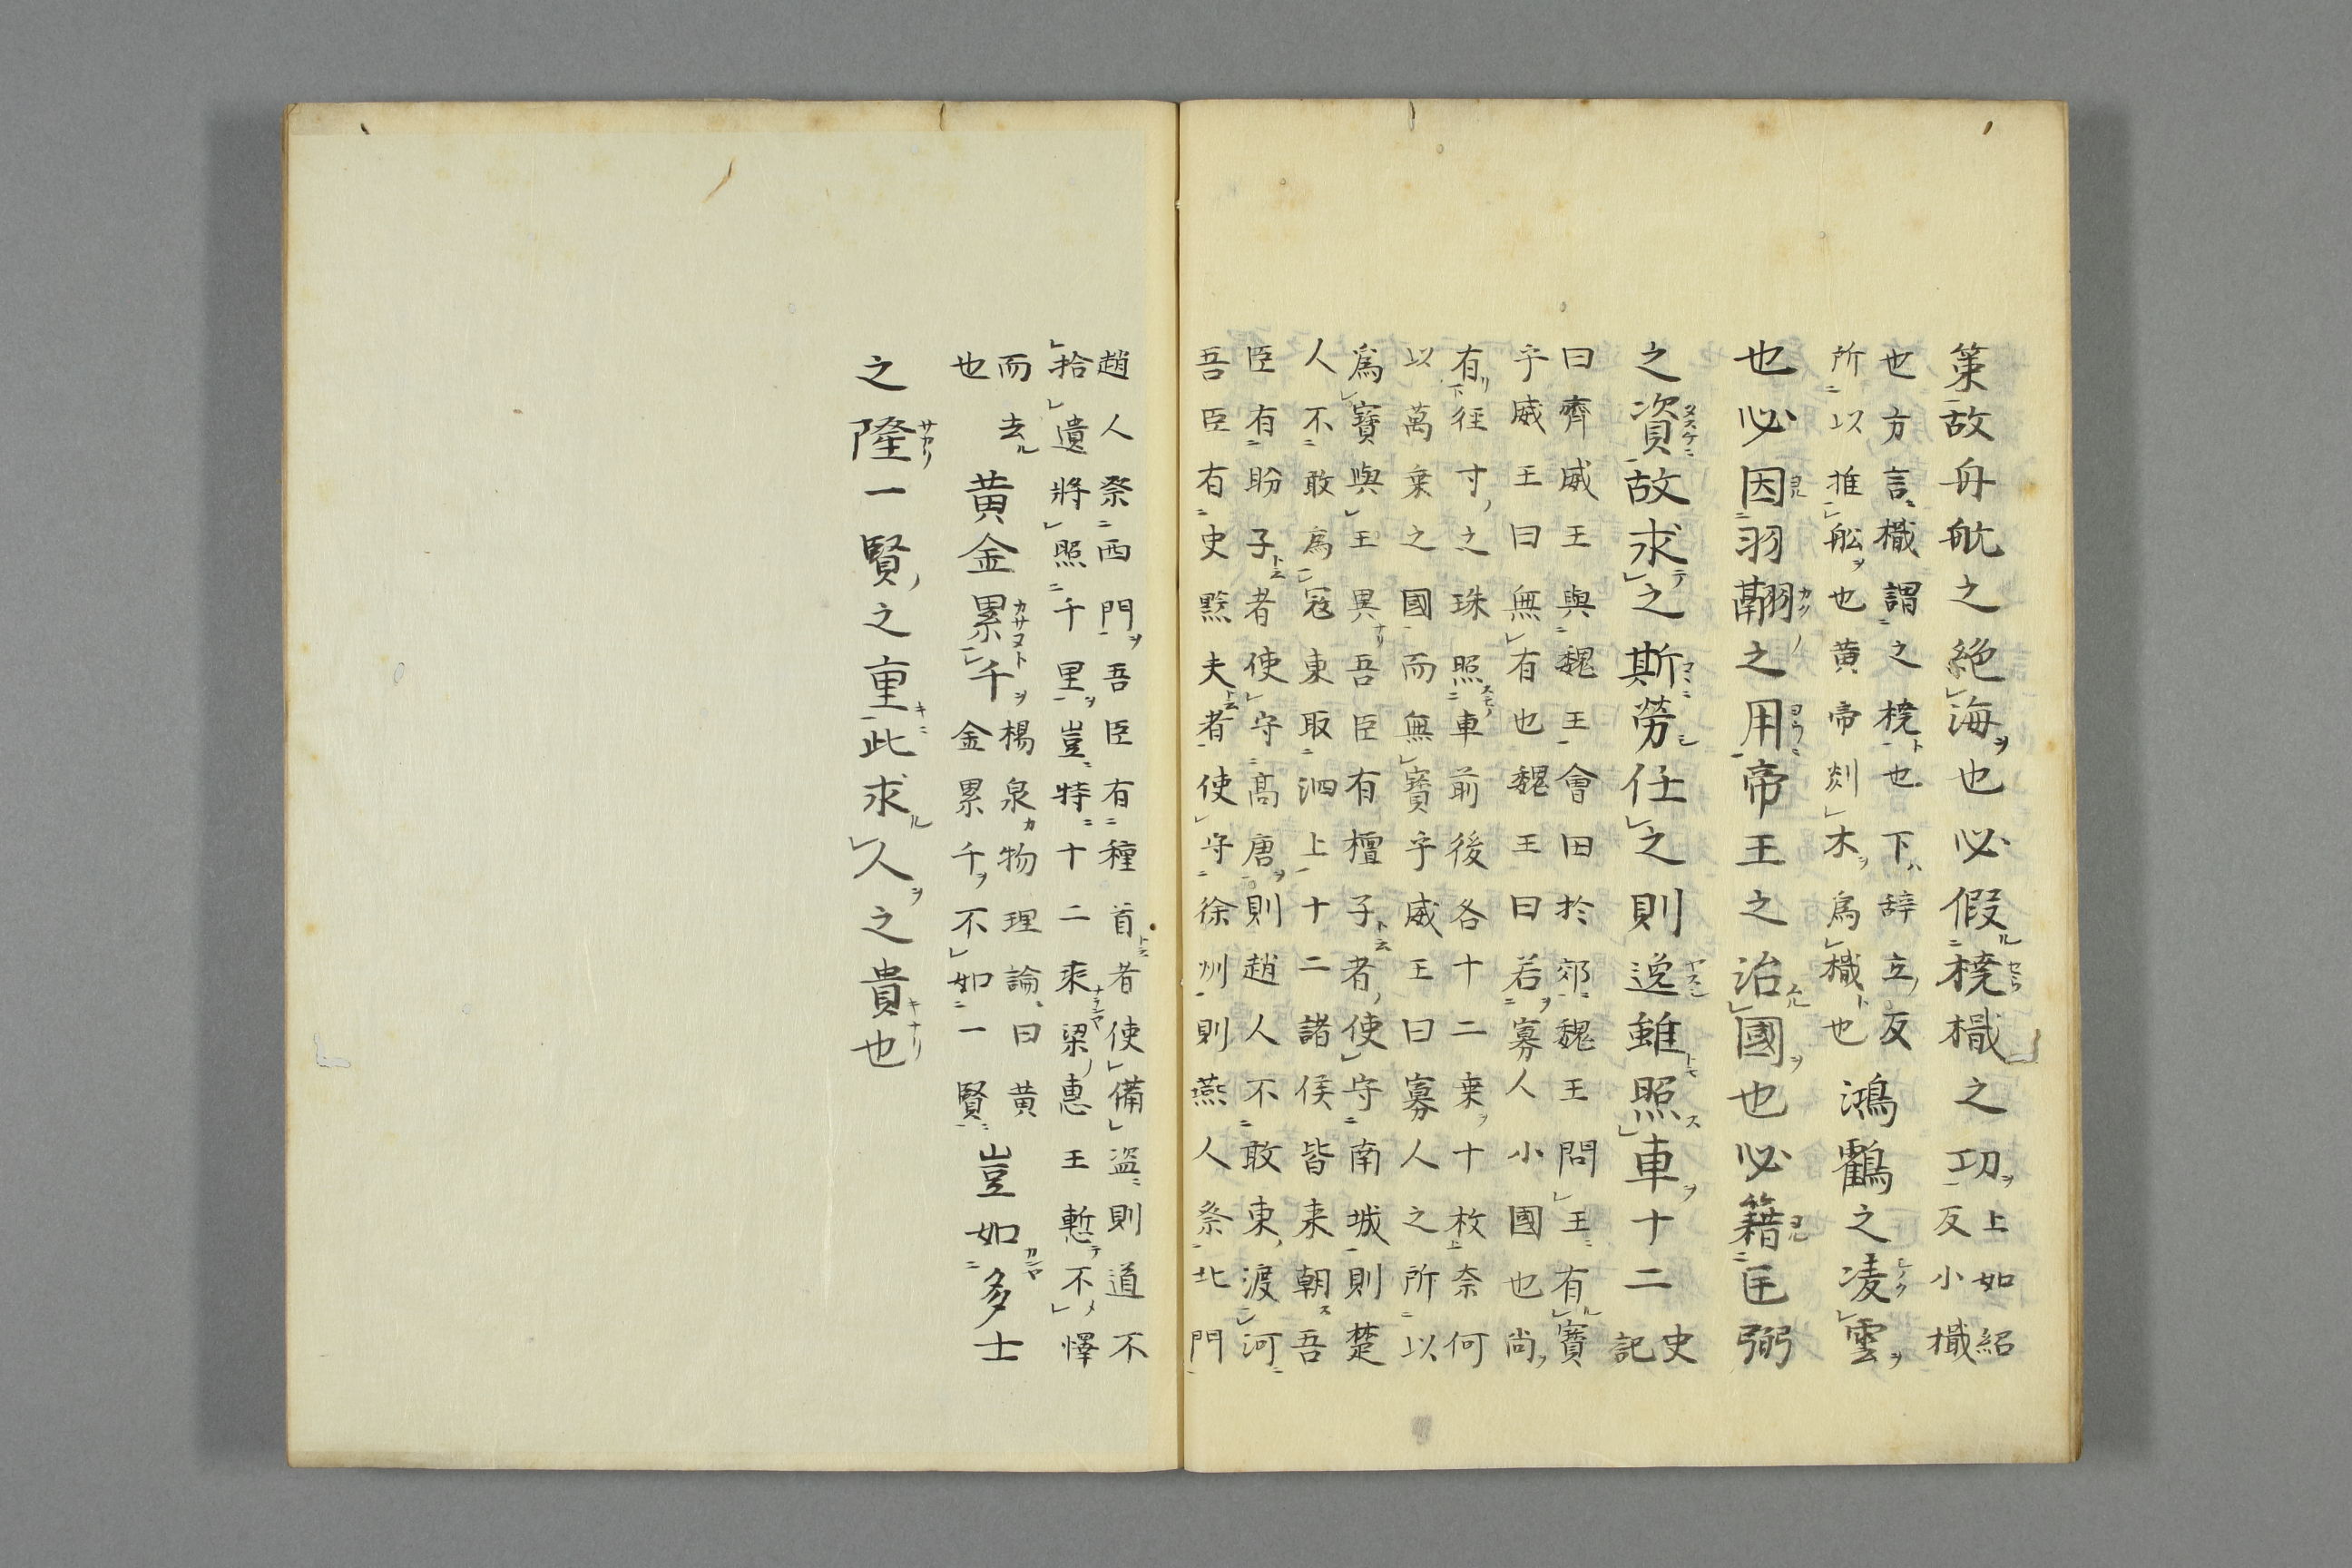 策故舟航之絶海也必假橈檝之功上如紹
反小檝
也方言檝謂之橈也下辞立反
所以推舩也黄帝剡木爲檝也鴻鶴之凌雲
也必因羽翮之用帝王之治國也必籍匡弼
之資故求之斯勞任之則逸雖照車十二史
記
曰齊威王與魏王會田於郊魏王問王有寶
乎威王曰無有也魏王曰若寡人小國也尚
有径寸之珠照車前後各十二乗十枚奈何
以萬乗之國而無寶乎威王曰寡人之所以
爲寶與王異吾臣有檀子者使守南城則楚
人不敢爲寇東取泗上十二諸侯皆来朝吾
臣有盼子者使守高唐則趙人不敢東渡河
吾臣有史黙夫者使守徐州則燕人祭北門
趙人祭西門吾臣有種首者使備盗則道不
拾遺將照千里豈特十二乘梁惠王慙不懌
而去
也黄金累千楊泉物理論曰黄
金累千不如一賢豈如多士
之隆一賢之重此求人之貴也